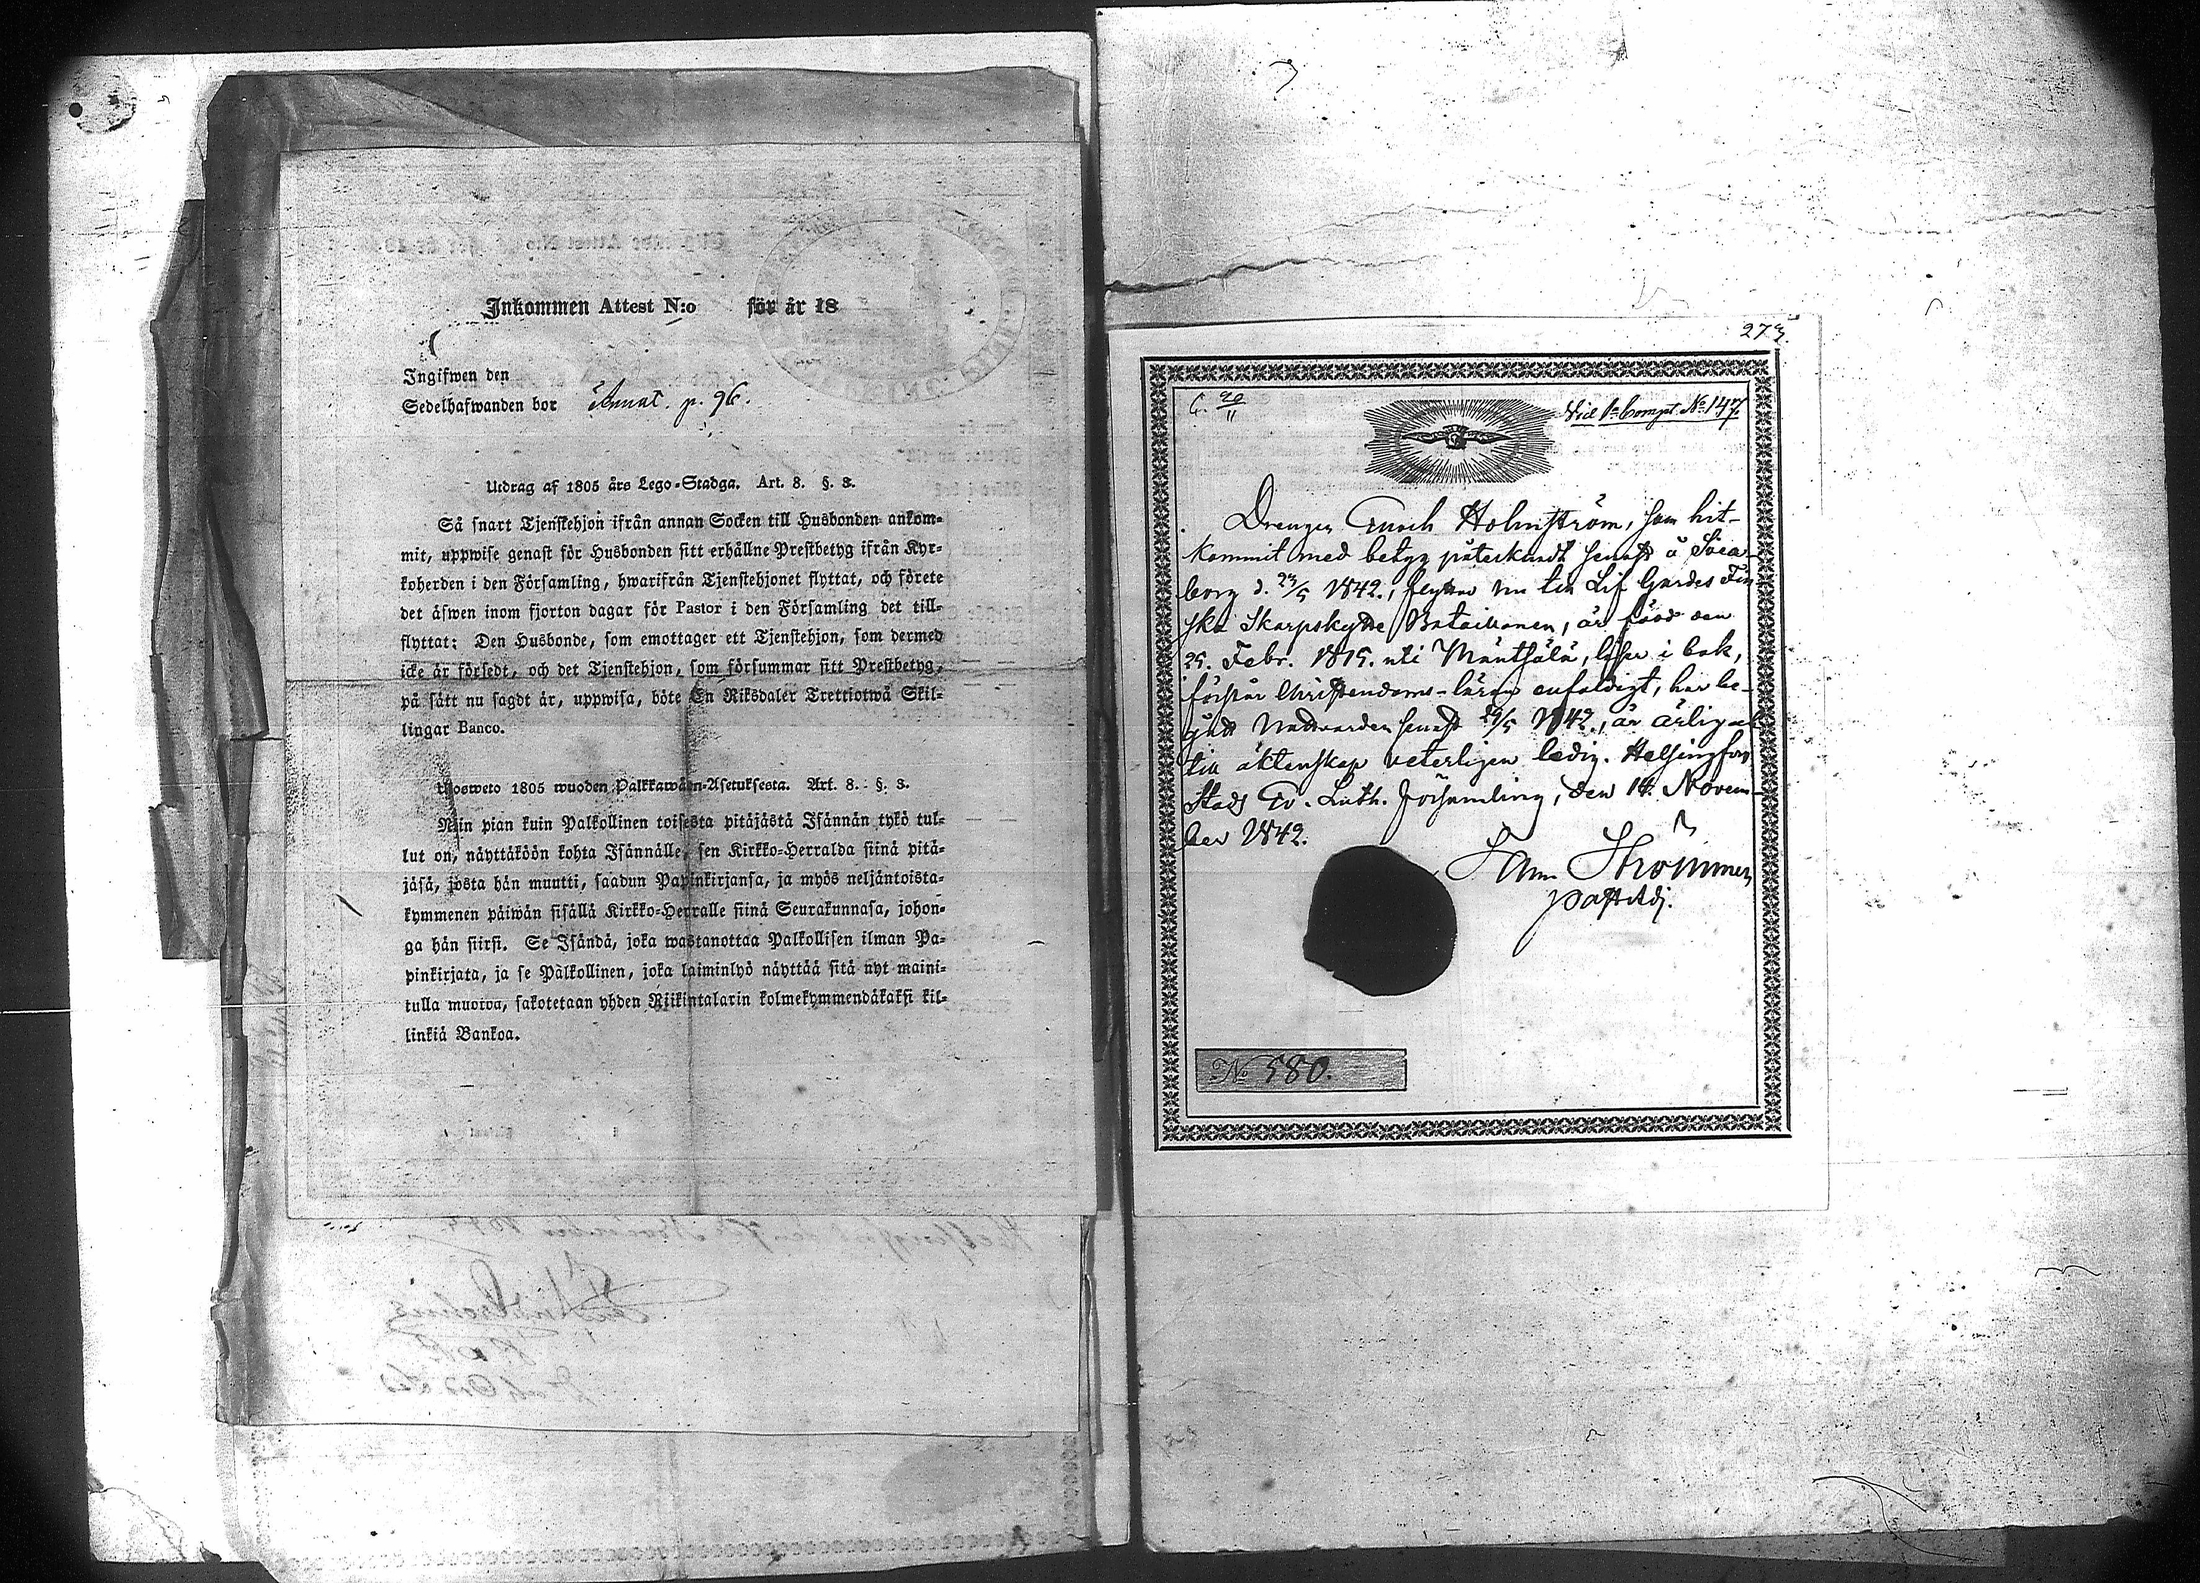 Inkommen Attest N:o för år 18
Ingifwen den
Sedelhafwanden bor p. 96.
Utdrag af 1805 års Lego-Stadga. Art. 8. §. 8.
Så snart Tjenstehjon ifrån annan Socken till Husbonden ankom-
mit, uppwise genast för Husbonden sitt erhållne Prestbetyg ifrån Kyr-
koherden i den Församling, hwarifrån Tjenstehjonet flyttat, och förete
det äfwen inom fjorton dagar för Pastor i den Församling det till-
flyttat: Den Husbonde, som emottager ett Tjenstehjon, som dermed
icke är försedt, och det Tjenstehjon, som försummar sitt Prestbetyg,
på sätt nu sagdt är, uppwisa, böte En Riksdaler Trettiotwå Skil-
lingar Banco.
Uosweto 1805 wuoden Palkkawäen-Asetuksesta. Art. 8. §. 8.
Niin pian kuin Palkollinen toisesta pitäjästä Isännän tykö tul-
lut on, näyttäköön kohta Isännälle, sen Kirkko-Herralda siinä pitä-
jäsä, josta hän muutti, saadun Papinkirjansa, ja myös neljäntoista-
kymmenen päiwän sisällä Kirkko-Herralle siinä Seurakunnasa, johon-
ga hän siirsi. Se Isändä, joka wastanottaa Palkollisen ilman Pa-
pinkirjata, ja se Palkollinen, joka laiminlyö näyttää sitä nyt maini-
tulla muotoa, sakotetaan yhden Riikintalarin kolmekymmendäkaksi kil-
linkiä Bankoa.
273
20/11 Vid 1a Compt No 147
Drengen Enoch Holmström, som hit-
kommit med betyg påteknadt senast å Svea-
borg d. 23/5 1842., flyttar nu till Lif Gardes Fin-
ska Skarpskytte Bataillonen, är född den
25. Febr. 1815. uti Mäntsälä, läser i bok,
förstår Christendoms-läran enfaldigt, har be-
gått Nattvarden senast 29/5 1842., är ärlig och
till äktenskap veterligen ledig. Helsingfors
Stads Ev. Luth. Församling, den 14. Novem-
ber 1842.
Strömmer
Past. Adj.
No 580.